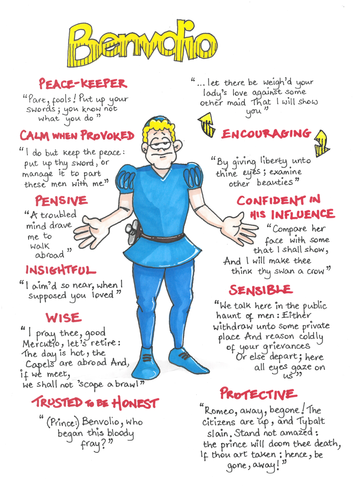 Benvolio
PEACE-KEEPER
"Part, fools! Put up your
swords; you know not
what you do"
CALM WHEN PROVOKED
"I do but keep the peace:
put up thy sword, or
manage it to part
these men with me"
PENSIVE
"A troubled
mind drave
me to
walk
abroad"
INSIGHTFUL
"I aim'd so near, when I
supposed you loved"
WISE
"I pray thee, good
Mercutio, let's retire:
The day is hot, the
Capels are abroad And,
if we meet,
we shall not 'scape a brawl"
TRUSTED TO BE HONEST
"(Prince) Benvolio, who
began this bloody
fray?"
"... let there be weigh'd your
lady's love against some
other maid That I will show
you"
ENCOURAGING
"By giving liberty unto
thine eyes; examine
other beauties"
CONFIDENT IN
HIS INFLUENCE
"Compare her
face with some
that I shall show,
And I will make thee
think thy swan a crow"
SENSIBLE
"We talk here in the public
haunt of men: Either
withdraw unto some private
place And reason coldly
of your grievances
Or else depart; here
all eyes gaze on
us"
PROTECTIVE
"Romeo, away, begone! The
citizens are up, and Tybalt
slain. Stand not amazed:
the prince will doom thee death,
If thou art taken: hence, be
gone, away!"